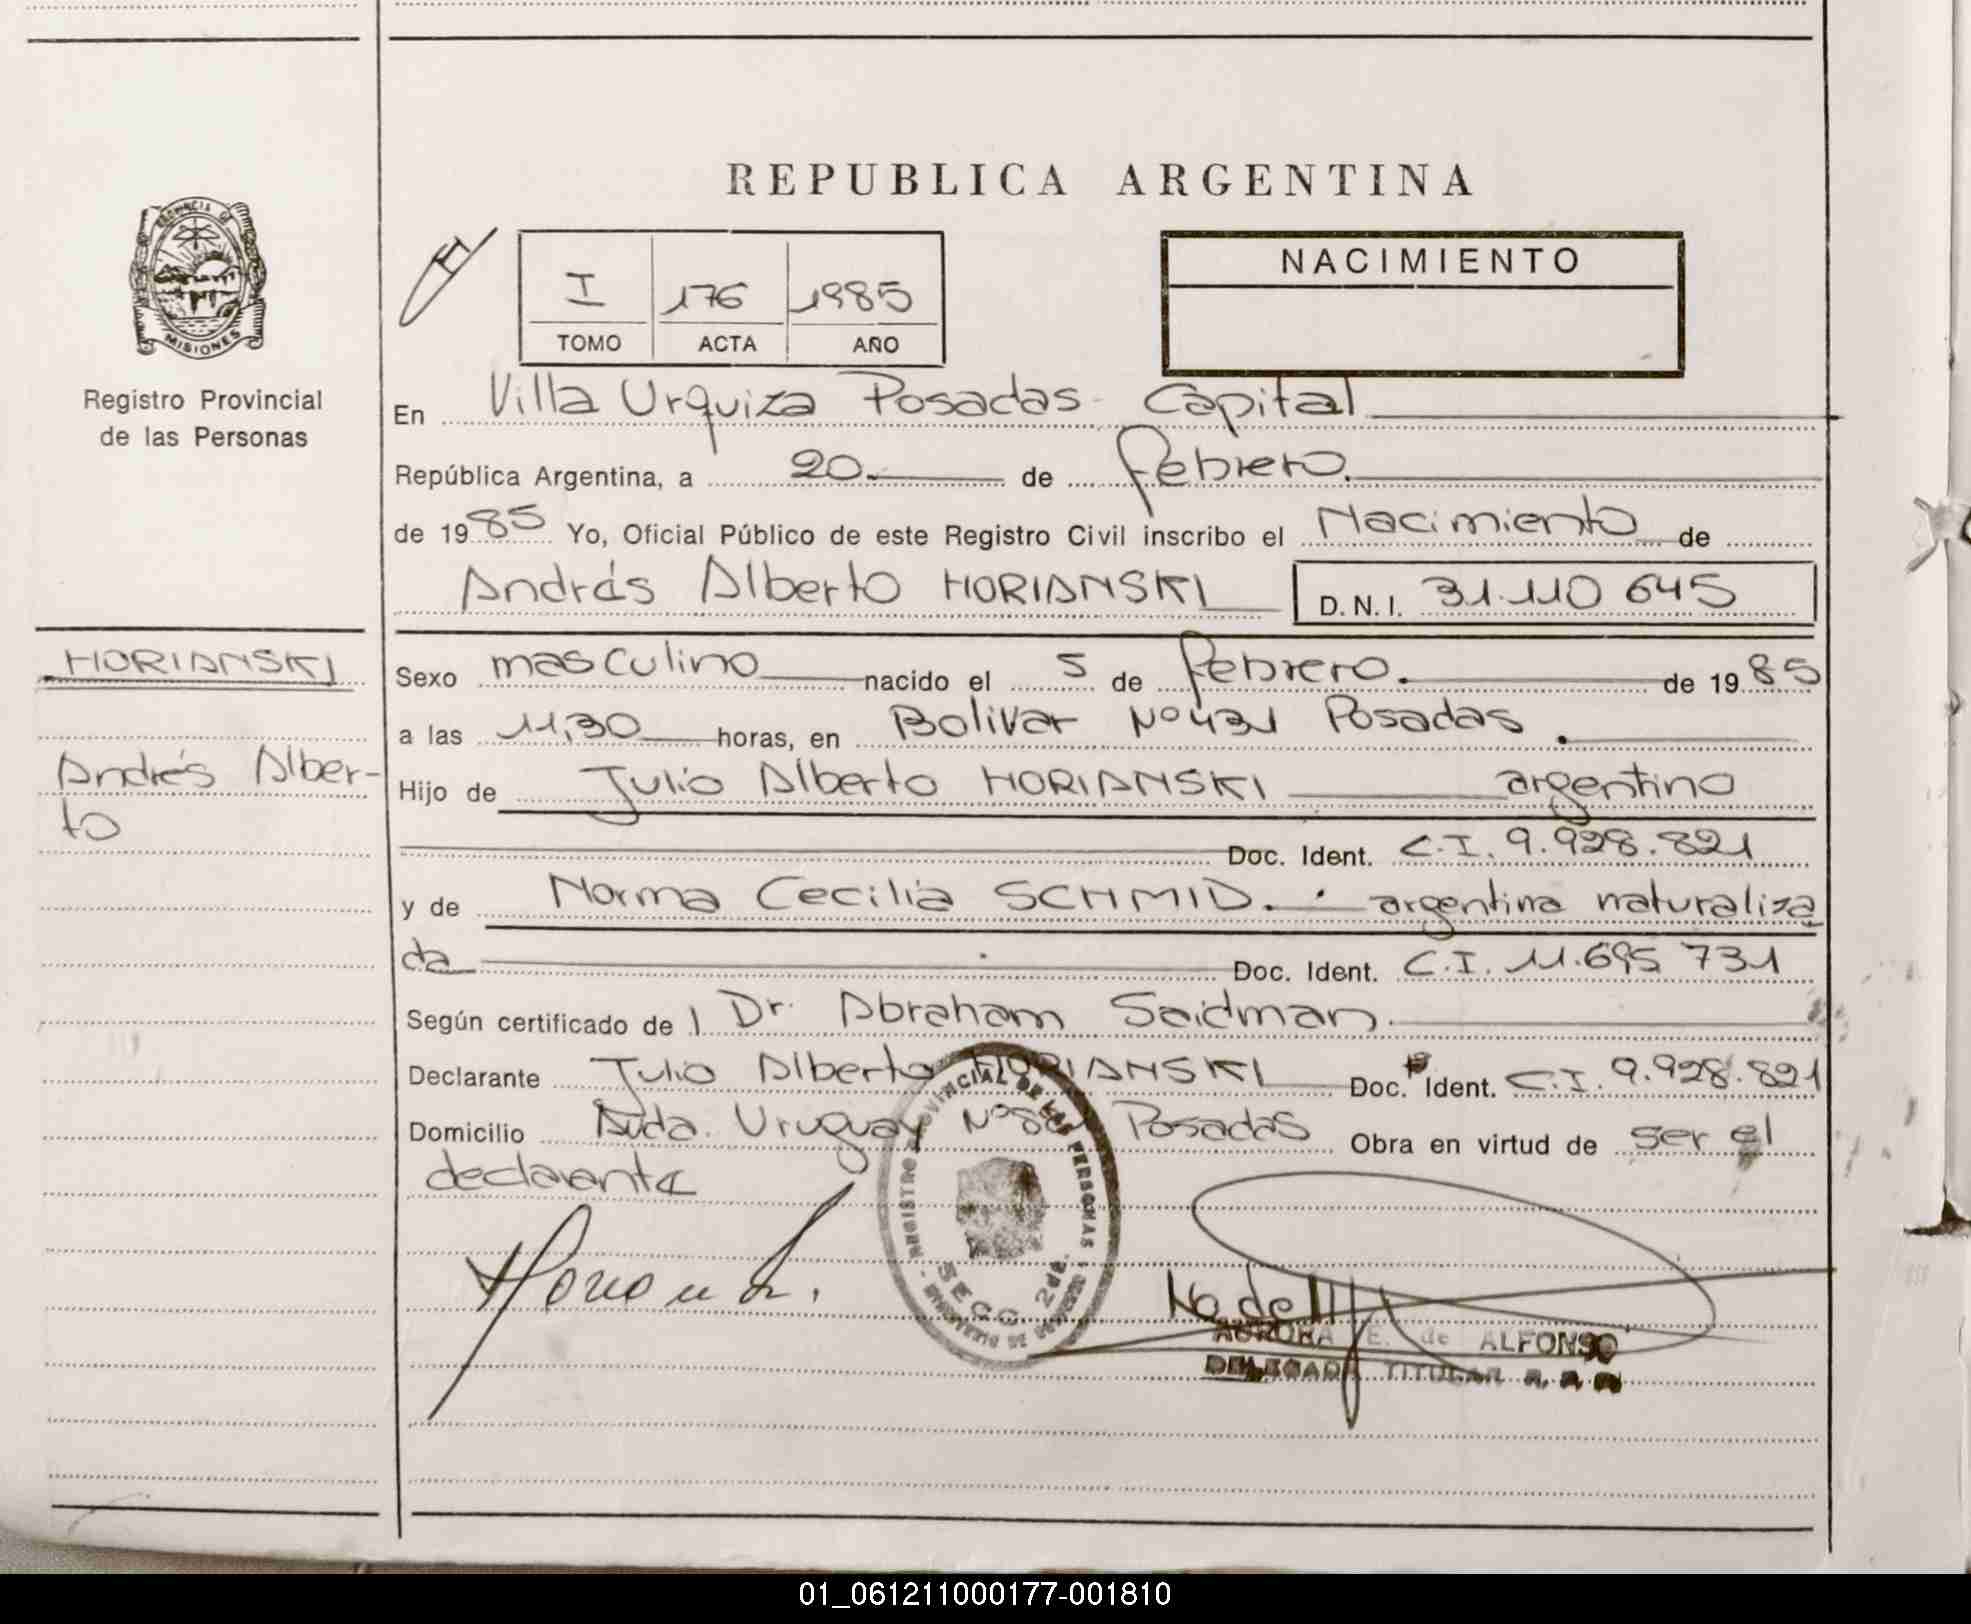 REPUBLICA ARGENTINA
PROVINCIA DE
MISIONES
Registro Provincial
de las Personas
I 176 1985
TOMO ACTA AÑO
NACIMIENTO
En Villa Urquiza Posadas - Capital
República Argentina, a 20 de febrero.
de 1985 Yo, Oficial Público de este Registro Civil inscribo el Nacimiento de
Andrés Alberto HORIANSKI D.N.I. 31.110 645
HORIANSKI
Andrés Alber-
to
Sexo masculino nacido el 5 de febrero. de 1985
a las 11,30 horas, en Bolivar Nº 431 Posadas.
Hijo de Julio Alberto HORIANSKI argentino
Doc. Ident. C.I. 9.928.821
y de Norma Cecilia SCHMID. argentina naturaliza
da Doc. Ident. C.I. 11.695 731
Según certificado de l Dr. Abraham Saidman.
Declarante Julio Alberto HORIANSKI Doc. Ident. C.I. 9.928.821
Domicilio Avda. Uruguay Posadas Obra en virtud de ser el
declarante
REGISTRO PROVINCIAL DE LAS PERSONAS
SECC. 2da.
AURORA E. de ALFONSO
DELEGADA TITULAR
01_061211000177-001810